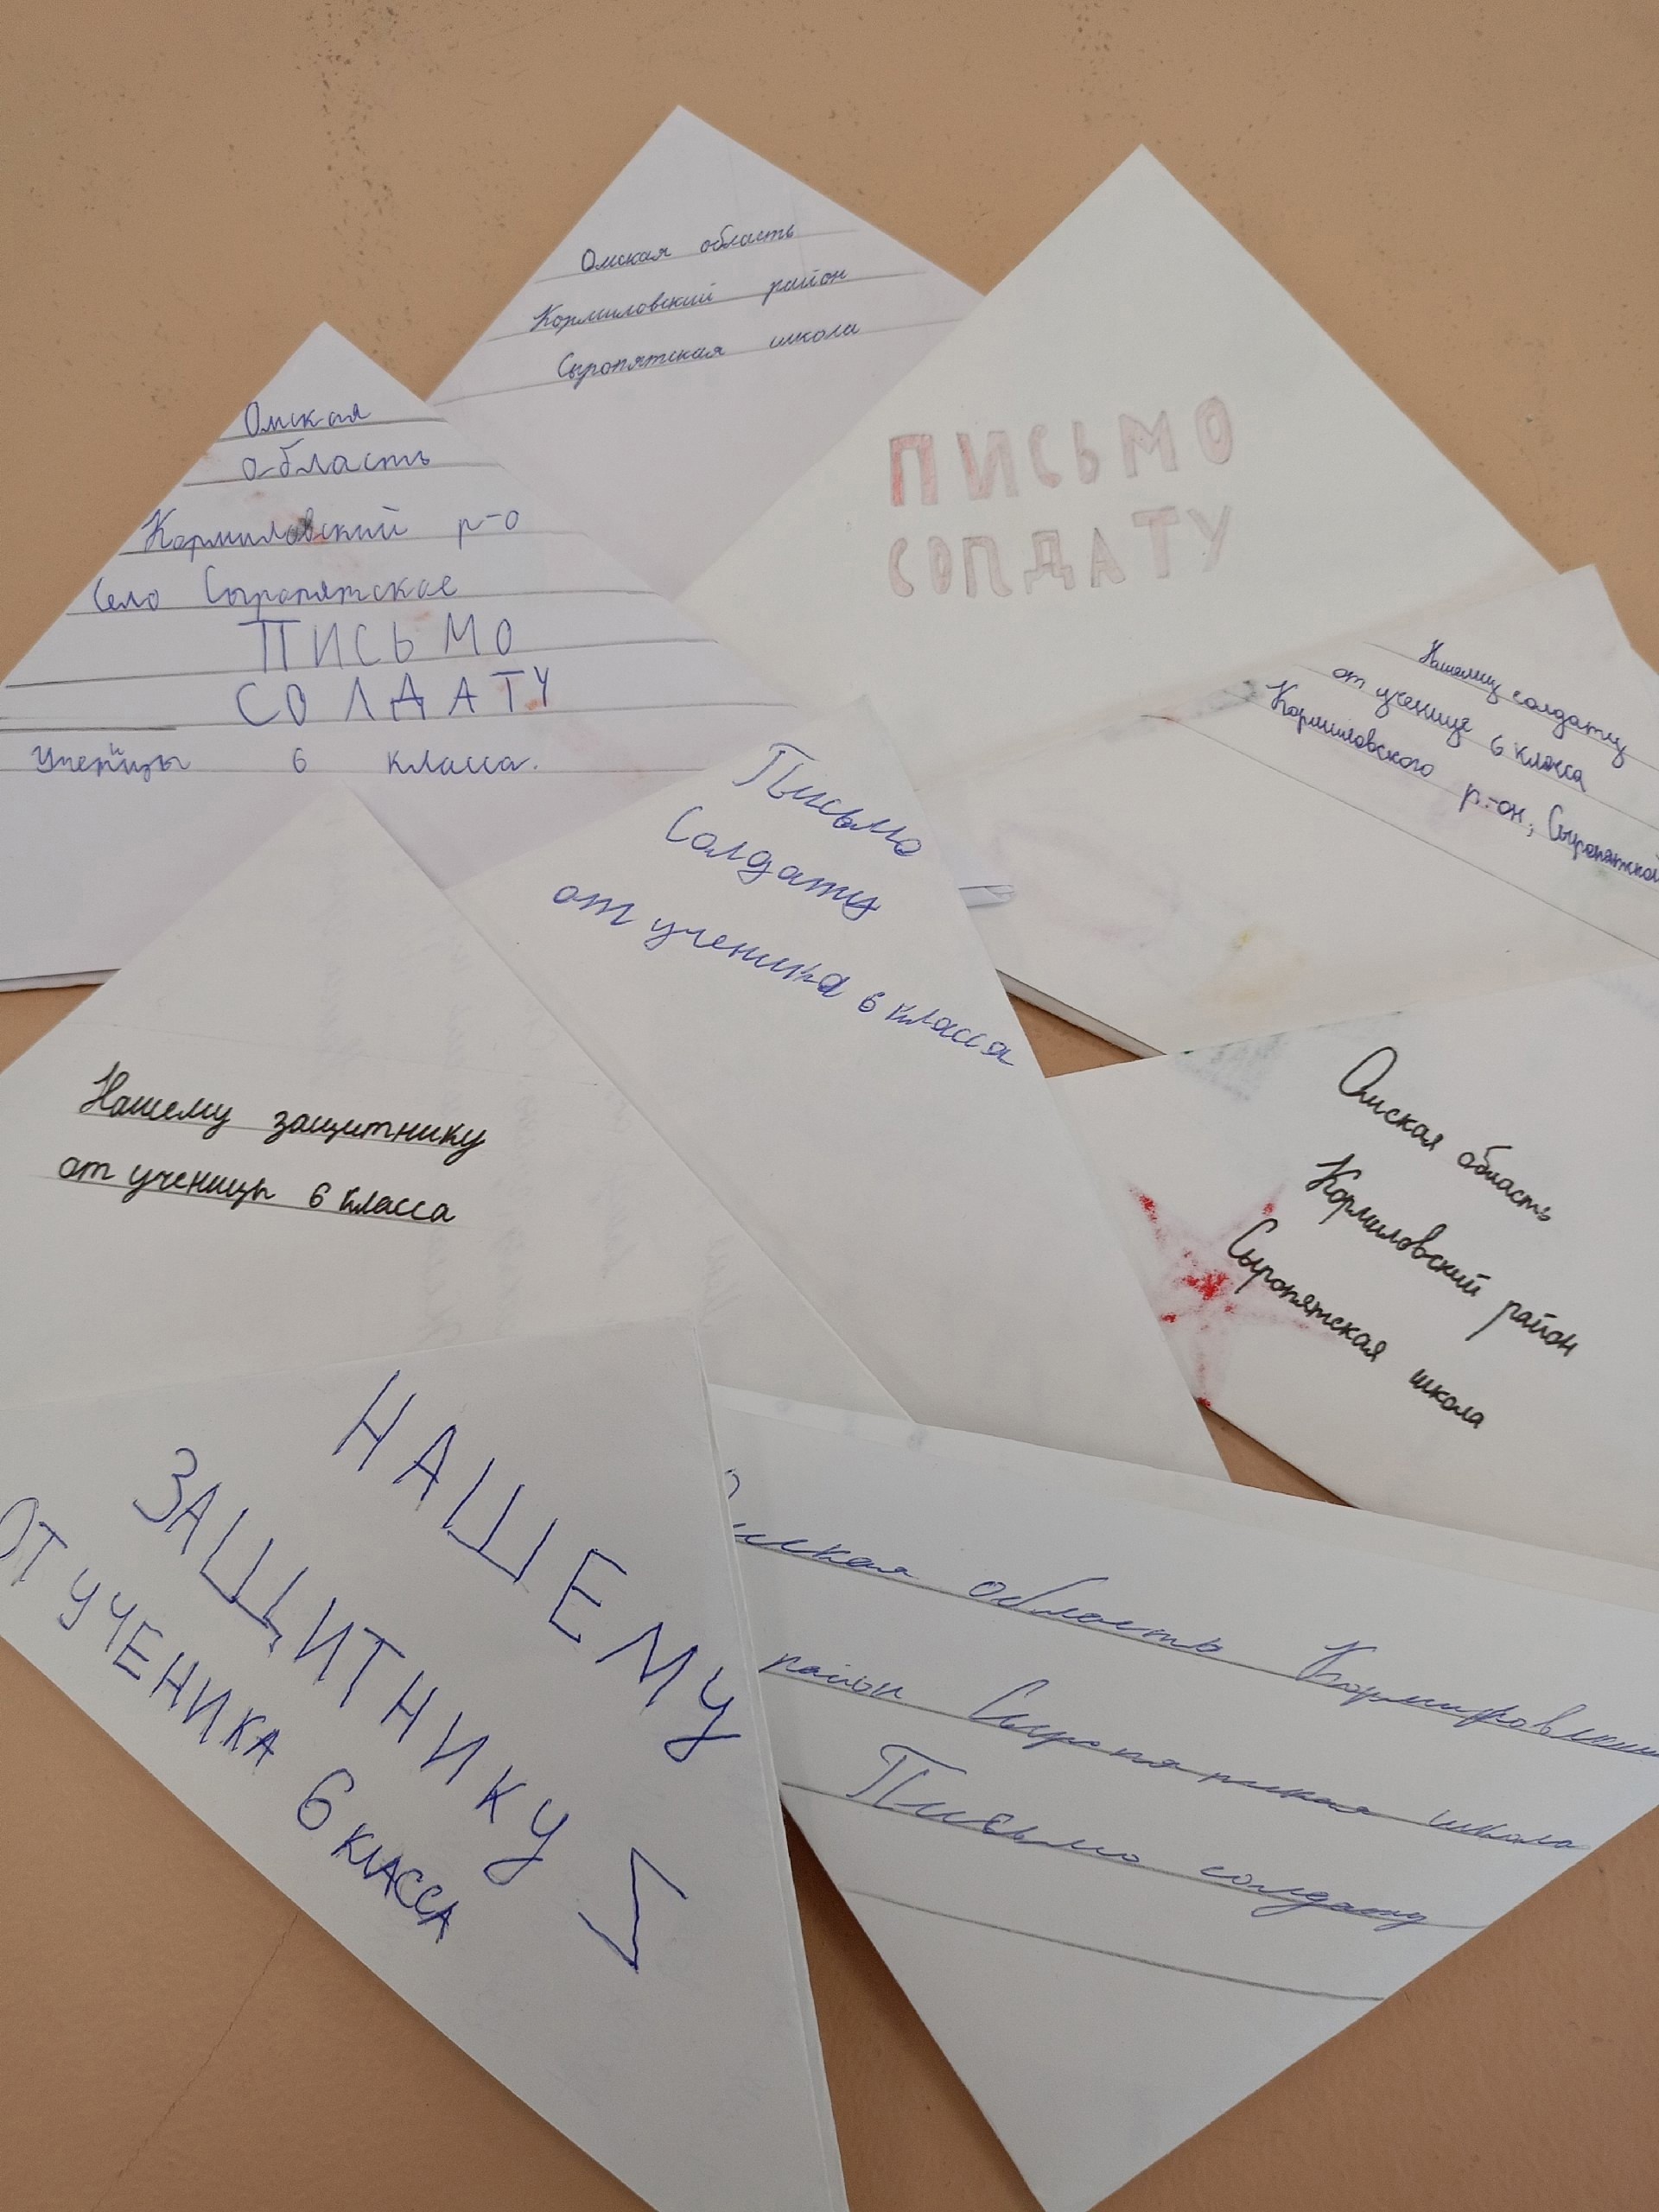 Омская область
Кормиловский район
Сыропятская школа
ПИСЬМО
СОЛДАТУ
Омская
область
Кормиловский р-о
Село Сыропятское
ПИСЬМО
СОЛДАТУ
6 класса.
Нашему солдату
от ученице 6 класса
Кормиловского р-он, Сыропятской
Письмо
Солдату
от ученика 6 класса
Нашему защитнику
от ученицы 6 класса
Омская область
Кормиловский район
Сыропятская школа
НАШЕМУ
ЗАЩИТНИКУ
ОТ УЧЕНИКА 6 КЛАССА
область
район школа
Письмо солдату